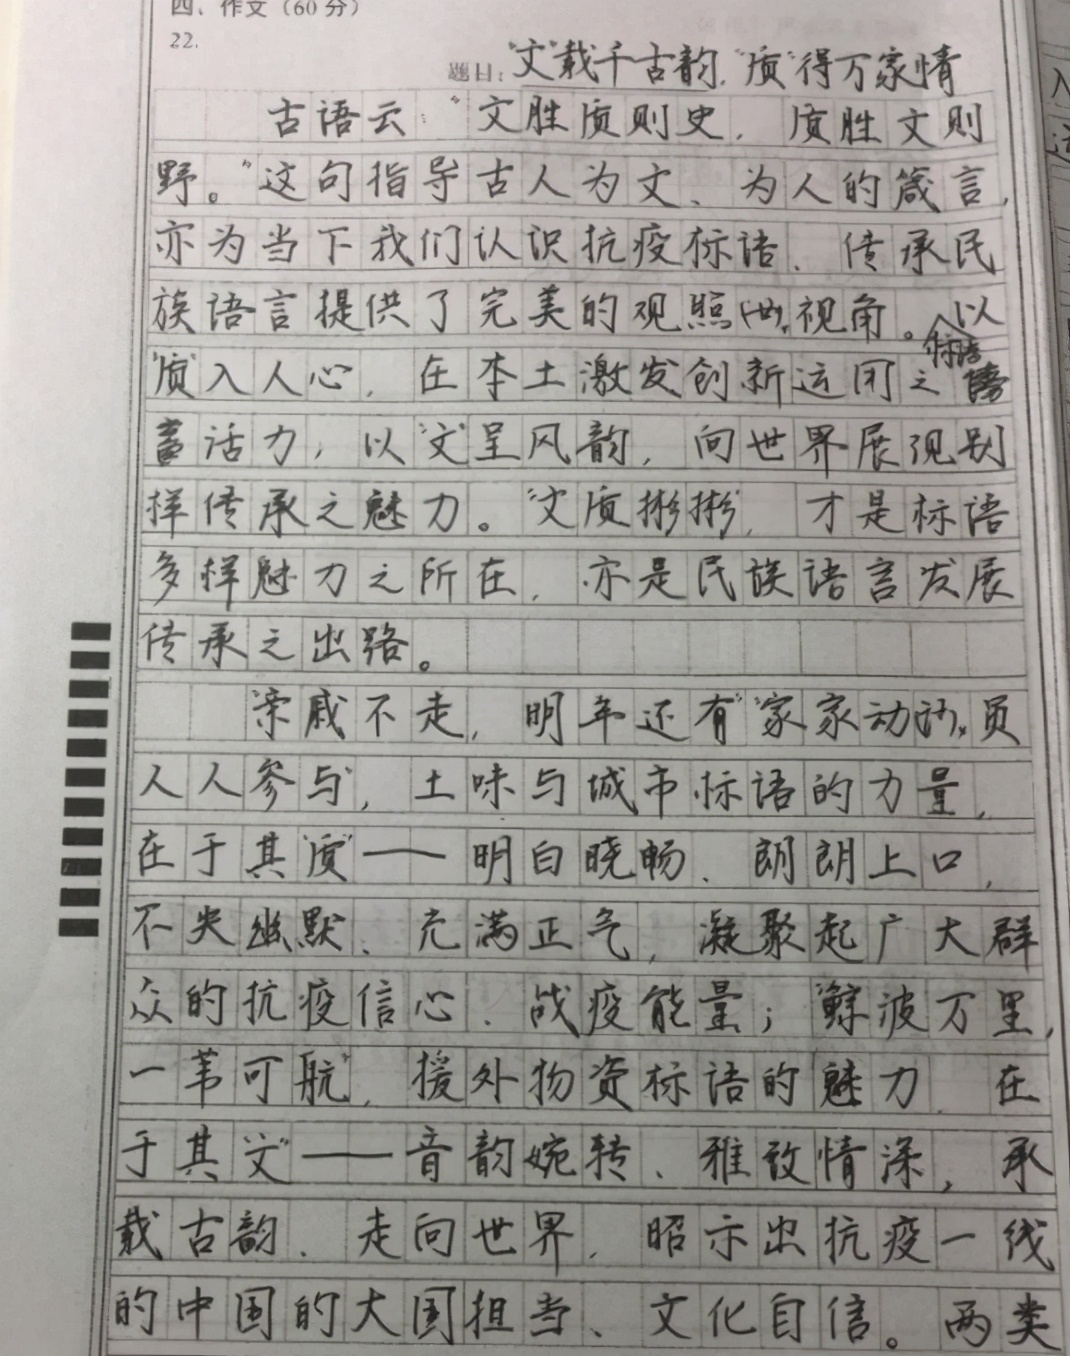 四、作文（60分）
22.
题目：“文”载千古韵，“质”得万家情
古语云：“文胜质则史，质胜文则
野。”这句指导古人为文、为人的箴言，
亦为当下我们认识抗疫标语、传承民
族语言提供了完美的观照视角。以
“质”入人心，在本土激发创新运用之标语
活力，以“文”呈风韵，向世界展现别
样传承之魅力。“文质彬彬”，才是标语
多样魅力之所在，亦是民族语言发展
传承之出路。
“亲戚不走，明年还有”“家家动员
人人参与”，土味与城市标语的力量，
在于其“质”——明白晓畅、朗朗上口，
不失幽默、充满正气，凝聚起广大群
众的抗疫信心、战疫能量；“鲸波万里，
一苇可航”，援外物资标语的魅力，在
于其“文”——音韵婉转、雅致情深，承
载古韵、走向世界，昭示出抗疫一线
的中国的大国担当、文化自信。两类